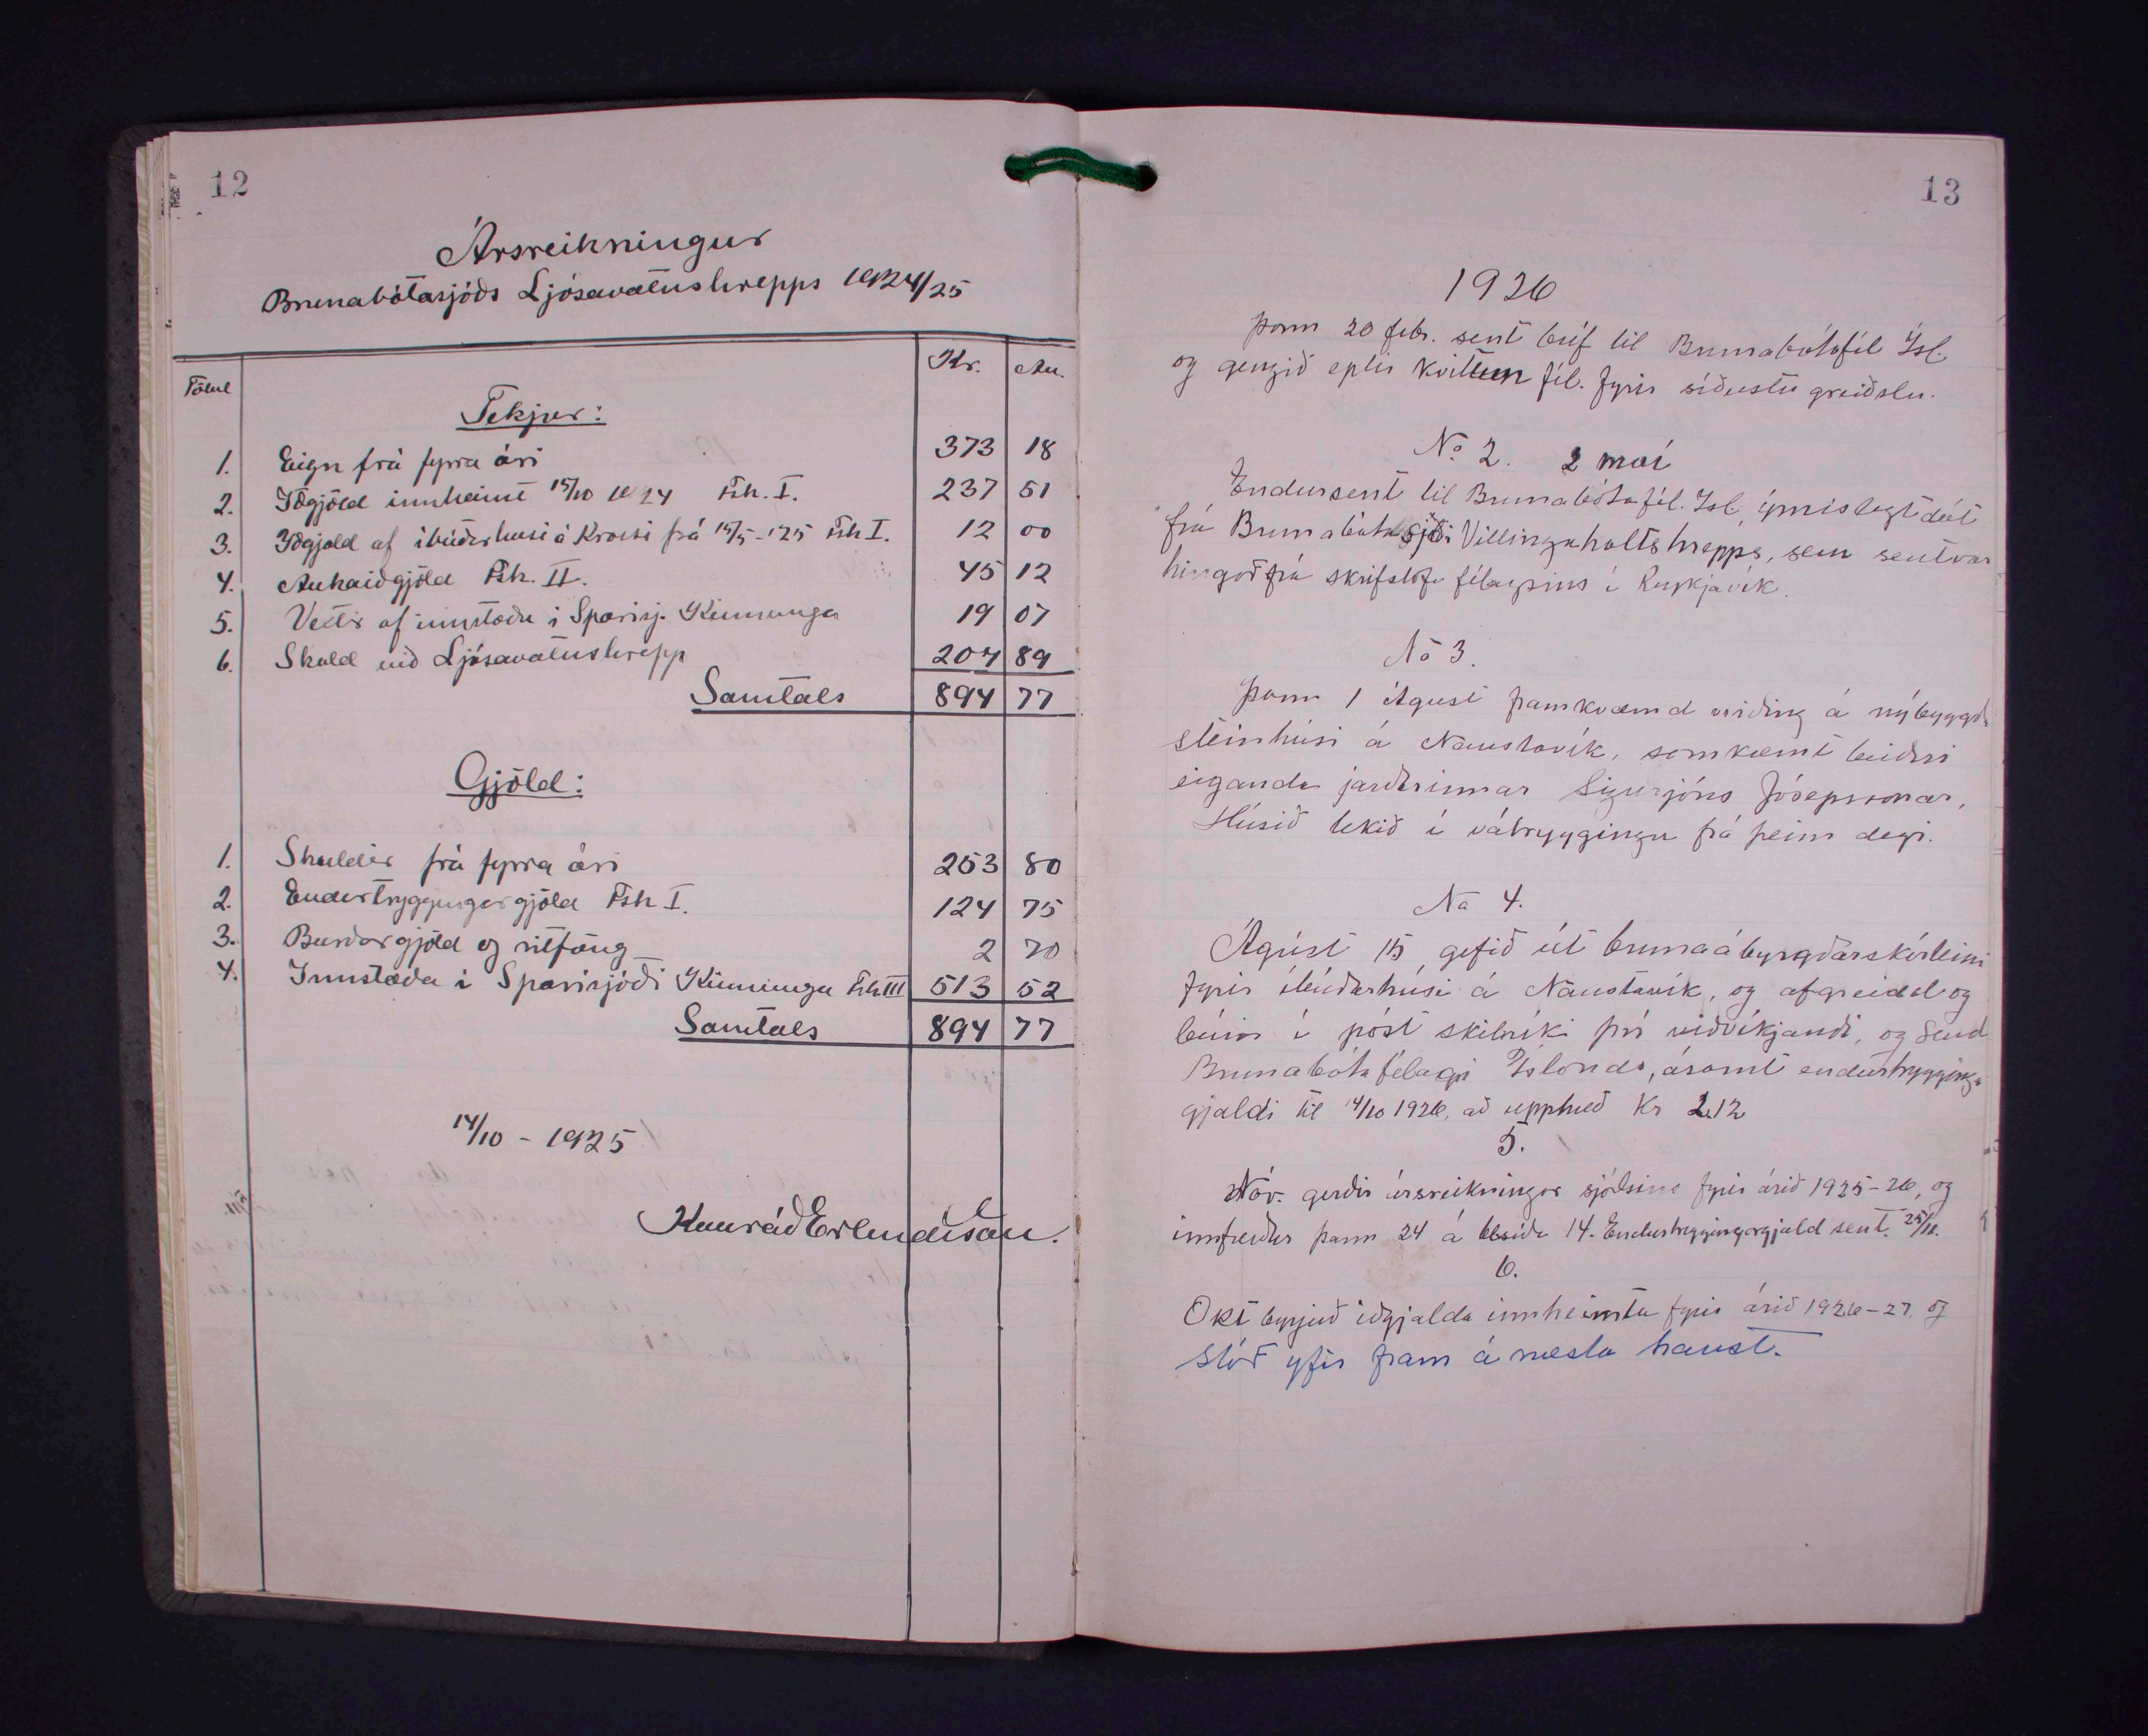 12
Ársreikningur
Brunabótasjóðs Ljósavatnshrepps 1924/25
Tölul Kr. Au.
Tekjur:
1. Eign frá fyrra ári 373 18
2. Iðgjöld innheimt 15/10 1924 Fsk. I. 237 51
3. Iðgjald af íbúðarhúsi á Krossi frá 15/5-'25 Fsk I. 12 00
4. Aukaiðgjöld Fsk. II. 45 12
5. Vextir af innstæðu í Sparisj. Kinnunga 19 07
6. Skuld við Ljósavatnshrepp 207 89
Samtals 894 77
Gjöld:
1. Skuldir frá fyrra ári 253 80
2. Endurtryggingargjöld Fsk I. 124 75
3. Burðargjöld og ritföng 2 70
4. Innstæða í Sparisjóði Kinnunga Fsk III 513 52
Samtals 894 77
14/10 - 1925
Konráð Erlendsson.
13
1926
Þann 20 febr. sent bréf til Brunabótafél Ísl.
og gengið eptir kvittun fél. fyrir síðustu greiðslu.
No 2. 2 maí
Endursent til Brunabótafél. Isl, ýmislegt dót
frá Brunabótasjóði Villingaholtshrepps, sem sent var
hingað frá skrifstofu félagsins í Reykjavík.
No 3.
Þann 1 Ágúst framkvæmd virðing á nýbyggðu
steinhúsi á Naustavík, samkvæmt beiðni
eiganda jarðarinnar Sigurjóns Jósepssonar,
Húsið tekið í vátryggingu frá þeim degi.
No 4.
Ágúst 15 gefið út brunaábyrgðarskírteini
fyrir íbúðarhúsi á Naustavík, og afgreidd og
búin í póst skilríki því viðvíkjandi, og send
Brunabótafélagi Íslands, ásamt endurtryggingar
gjaldi til 14/10 1926, að upphæð Kr 2.12
5.
Nóv. gerðir ársreikningar sjóðsins fyrir árið 1925-26, og
innfærður þann 24 á blsíðu 14. Endurtryggingargjald sent 25/11.
6.
Okt byrjuð iðgjalda innheimta fyrir árið 1926-27, og
stóð yfir fram á næsta haust.